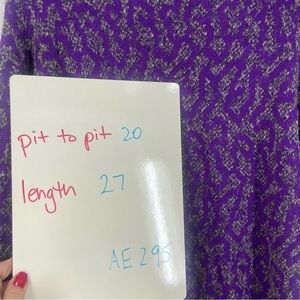 pit to pit 20
length 27
AE 295